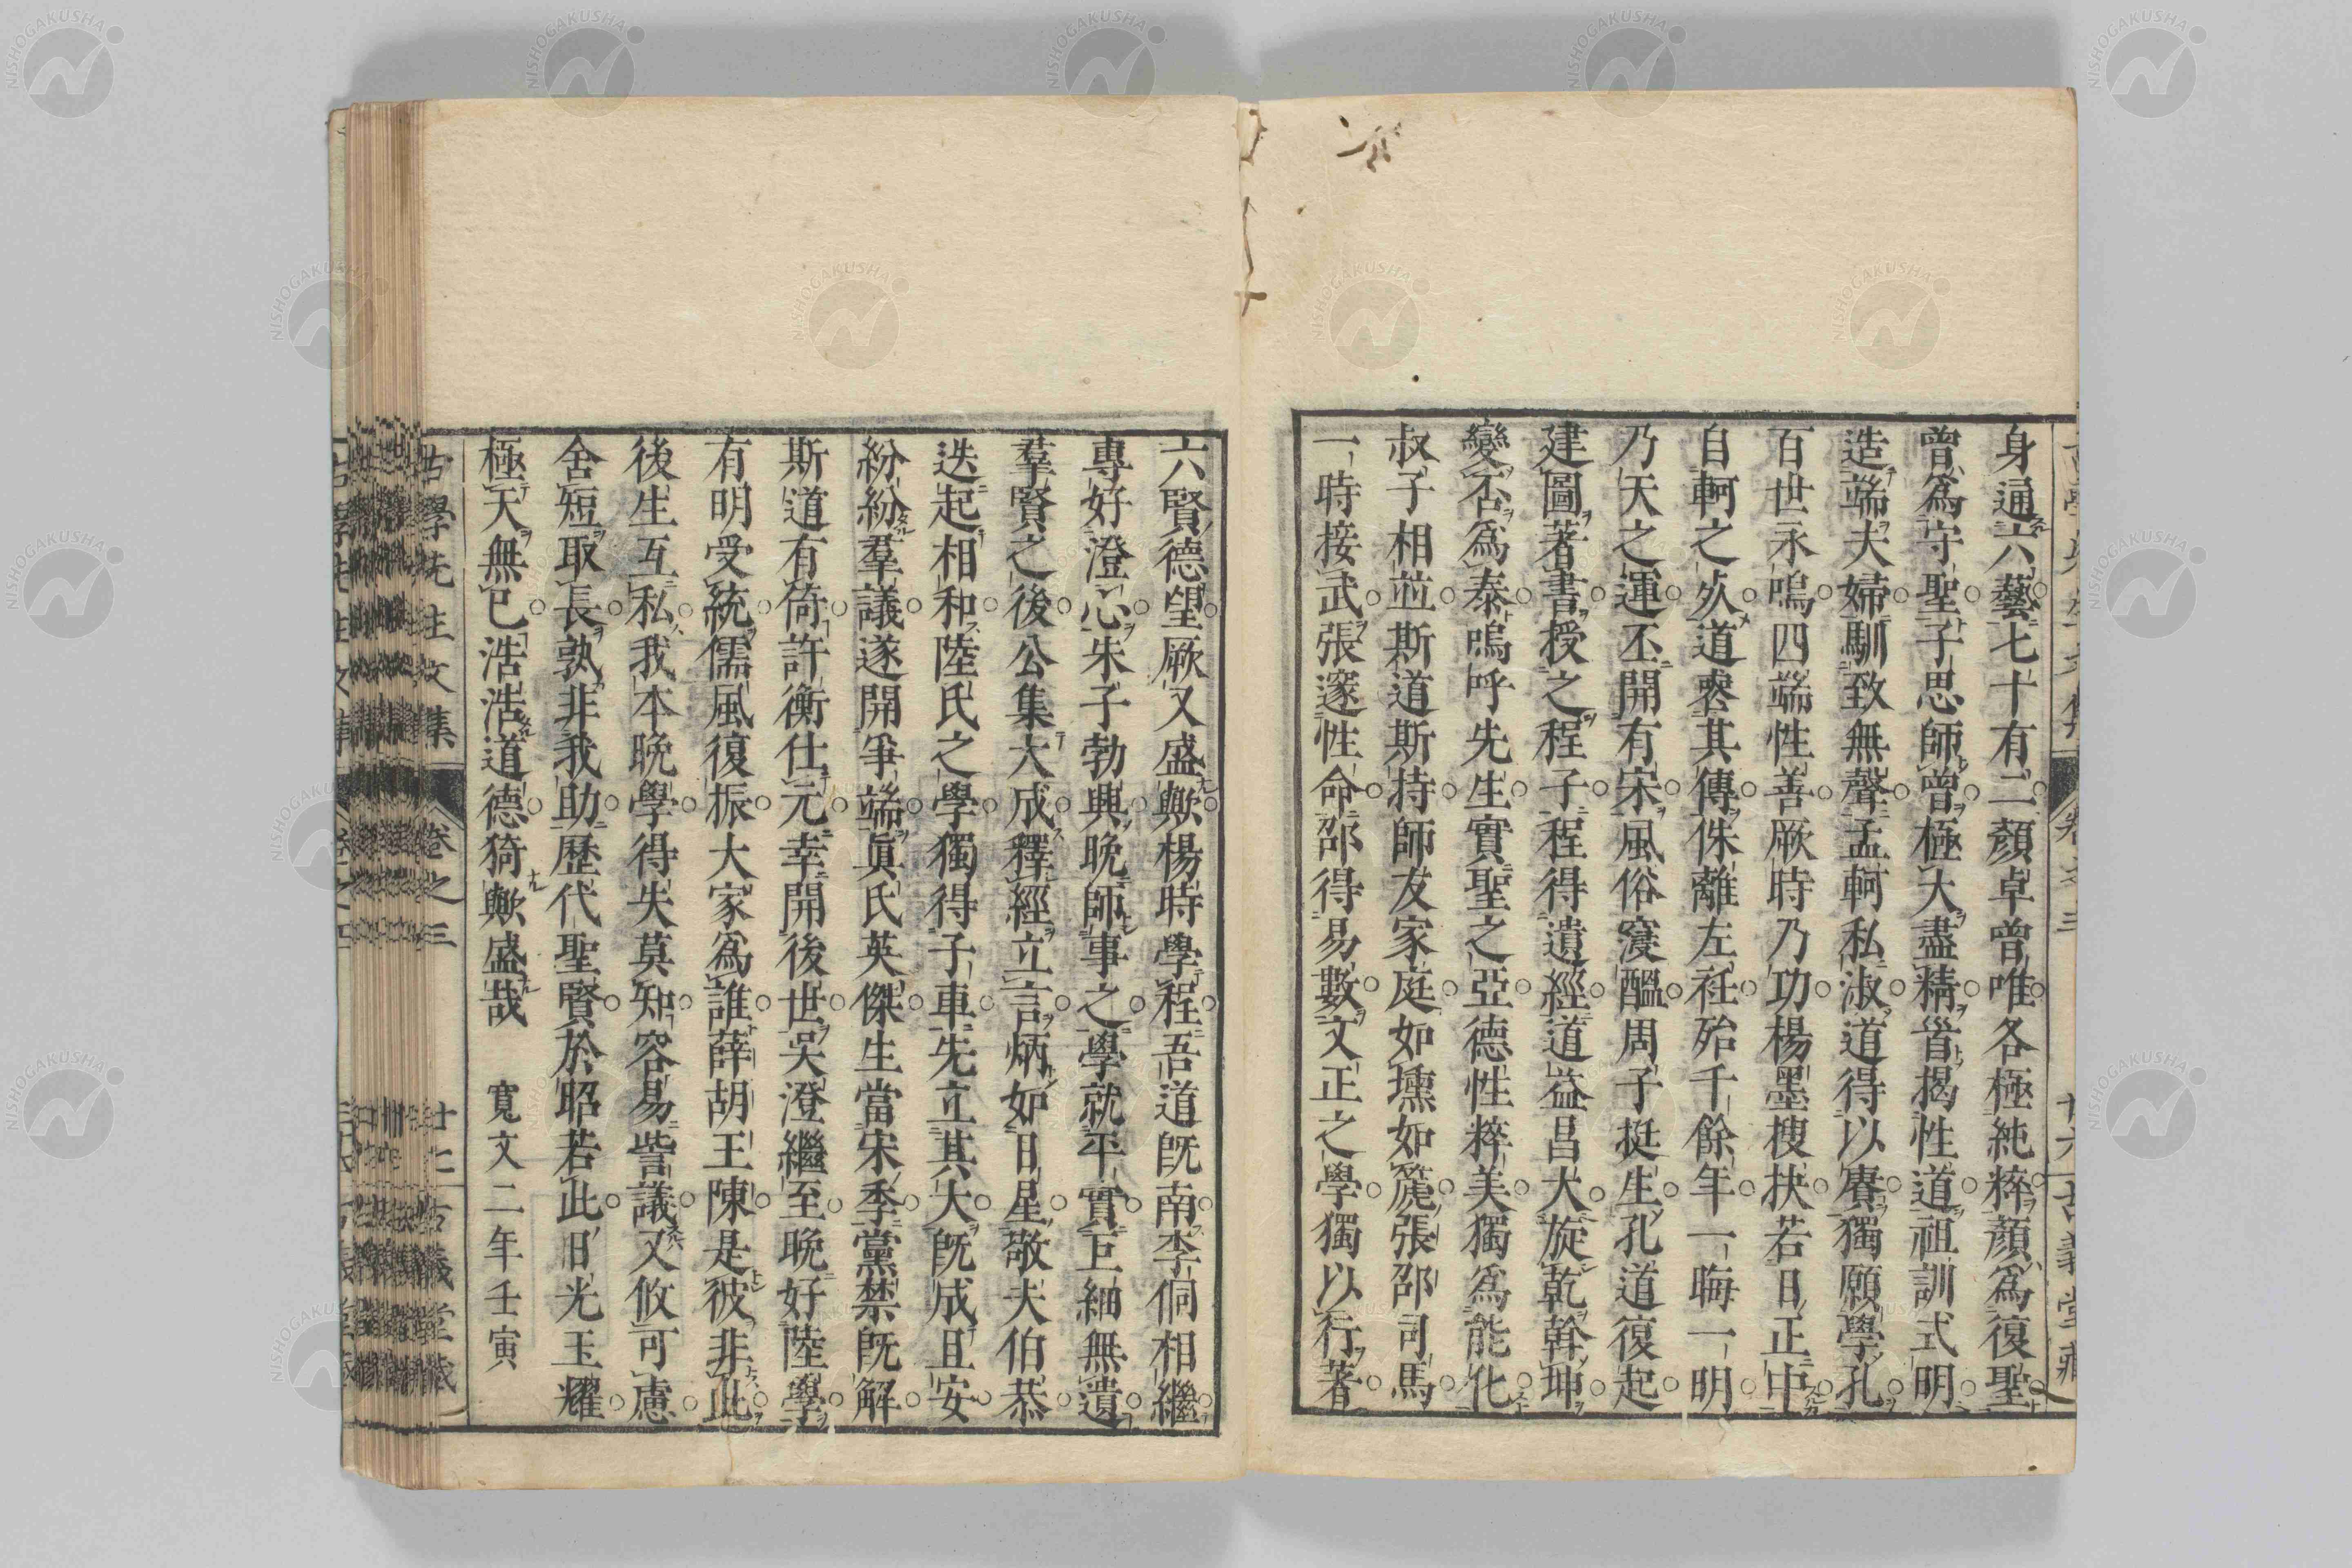 身通六藝七十有二顏卓曾唯各極純粹顏爲復聖
曾爲守聖子思師曾極大盡精首揭性道祖訓式明
造端夫婦馴致無聲孟軻私淑道得以賡獨願學孔
百世永鳴四端性善厥時乃功楊墨搜抉若日正中
自軻之歿道喪其傳侏離左衽殆千餘年一晦一明
乃天之運丕開有宋風俗寖醞周子挺生孔道復起
建圖著書授之程子程得遺經道益昌大旋乾斡坤
變否爲泰嗚呼先生實聖之亞德性粹美獨爲能化
叔子相並斯道斯持師友家庭如壎如篪張邵司馬
一時接武張邃性命邵得易數文正之學獨以行著
六賢德望厥又盛歟楊時學程吾道既南李侗相繼
專好澄心朱子勃興晩師事之學就平實巨細無遺
羣賢之後公集大成釋經立言炳如日星敬夫伯恭
迭起相和陸氏之學獨得子車先立其大既成且安
紛紛羣議遂開爭端眞氏英傑生當宋季黨禁既解
斯道有倚許衡仕元幸開後世吳澄繼至晩好陸學
有明受統儒風復振大家爲誰薛胡王陳是彼非此
後生互私我本晩學得失莫知容易訾議又攸可慮
舍短取長孰非我助歷代聖賢於昭若此日光玉耀
極天無已浩浩道德猗歟盛哉 寛文二年壬寅
古學先生文集 卷之三 廿七 古義堂藏